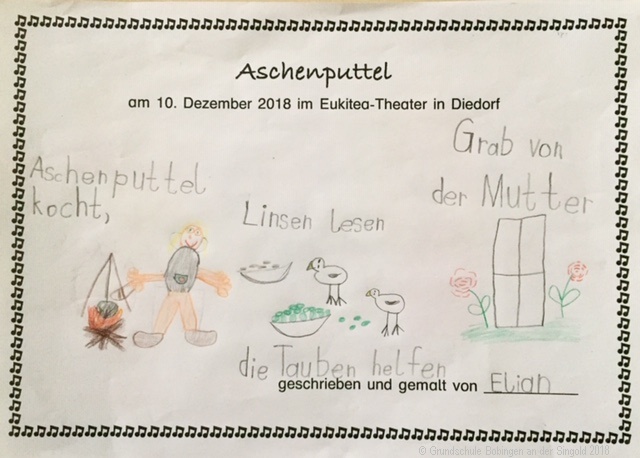 Aschenputtel
am 10. Dezember 2018 im Eukitea-Theater in Diedorf
Aschenputtel
kocht,
Linsen lesen
die Tauben helfen
Grab von
der Mutter
geschrieben und gemalt von Elian
© Grundschule Bobingen an der Singold 2018